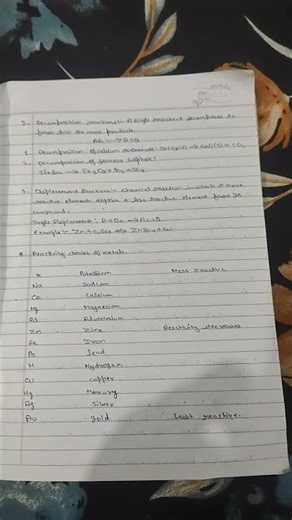 2. Decomposition reaction:- A single reactant decomposes to
form two or more products.
AB → A+B
1. Decomposition of calcium carbonate:- CaCO3(s) → CaO(s) + CO2
2. Decomposition of ferrous sulphate:-
→ Fe2O3 + SO2 + SO3
3. Displacement Reaction:- Chemical reaction in which a more
reactive element a less reactive element from its
compound.
Single Displacement:- A+BC → AC+B
Example:- Zn + CuSO4 → ZnSO4 + Cu
Reactivity series of metals
K Potassium Most reactive
Na Sodium
Ca Calcium
Mg Magnesium
Al Aluminium
Zn Zinc Reactivity decreases
Fe Iron
Pb Lead
H Hydrogen
Cu Copper
Hg Mercury
Ag Silver
Au Gold Least reactive.